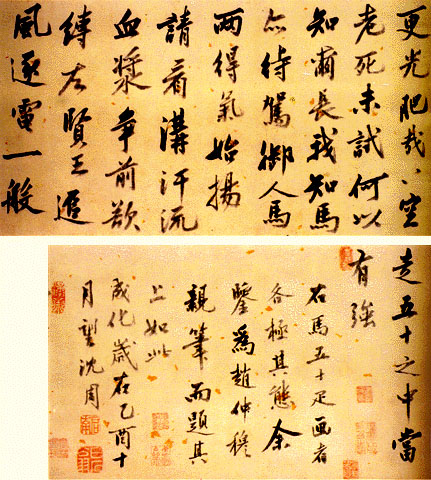 更光肥哉以空
老死未試何以
知爾長我知馬
亦待駕御人馬
兩得氣始揚
請看溝汗流
血漿爭前欲
縛左賢王追
風逐電一般
走五十之中當
有強
右馬五十疋画者
各極其態余
鑒爲趙仲穆
親筆而題其
上如此
成化歲在乙酉十
月望沈周